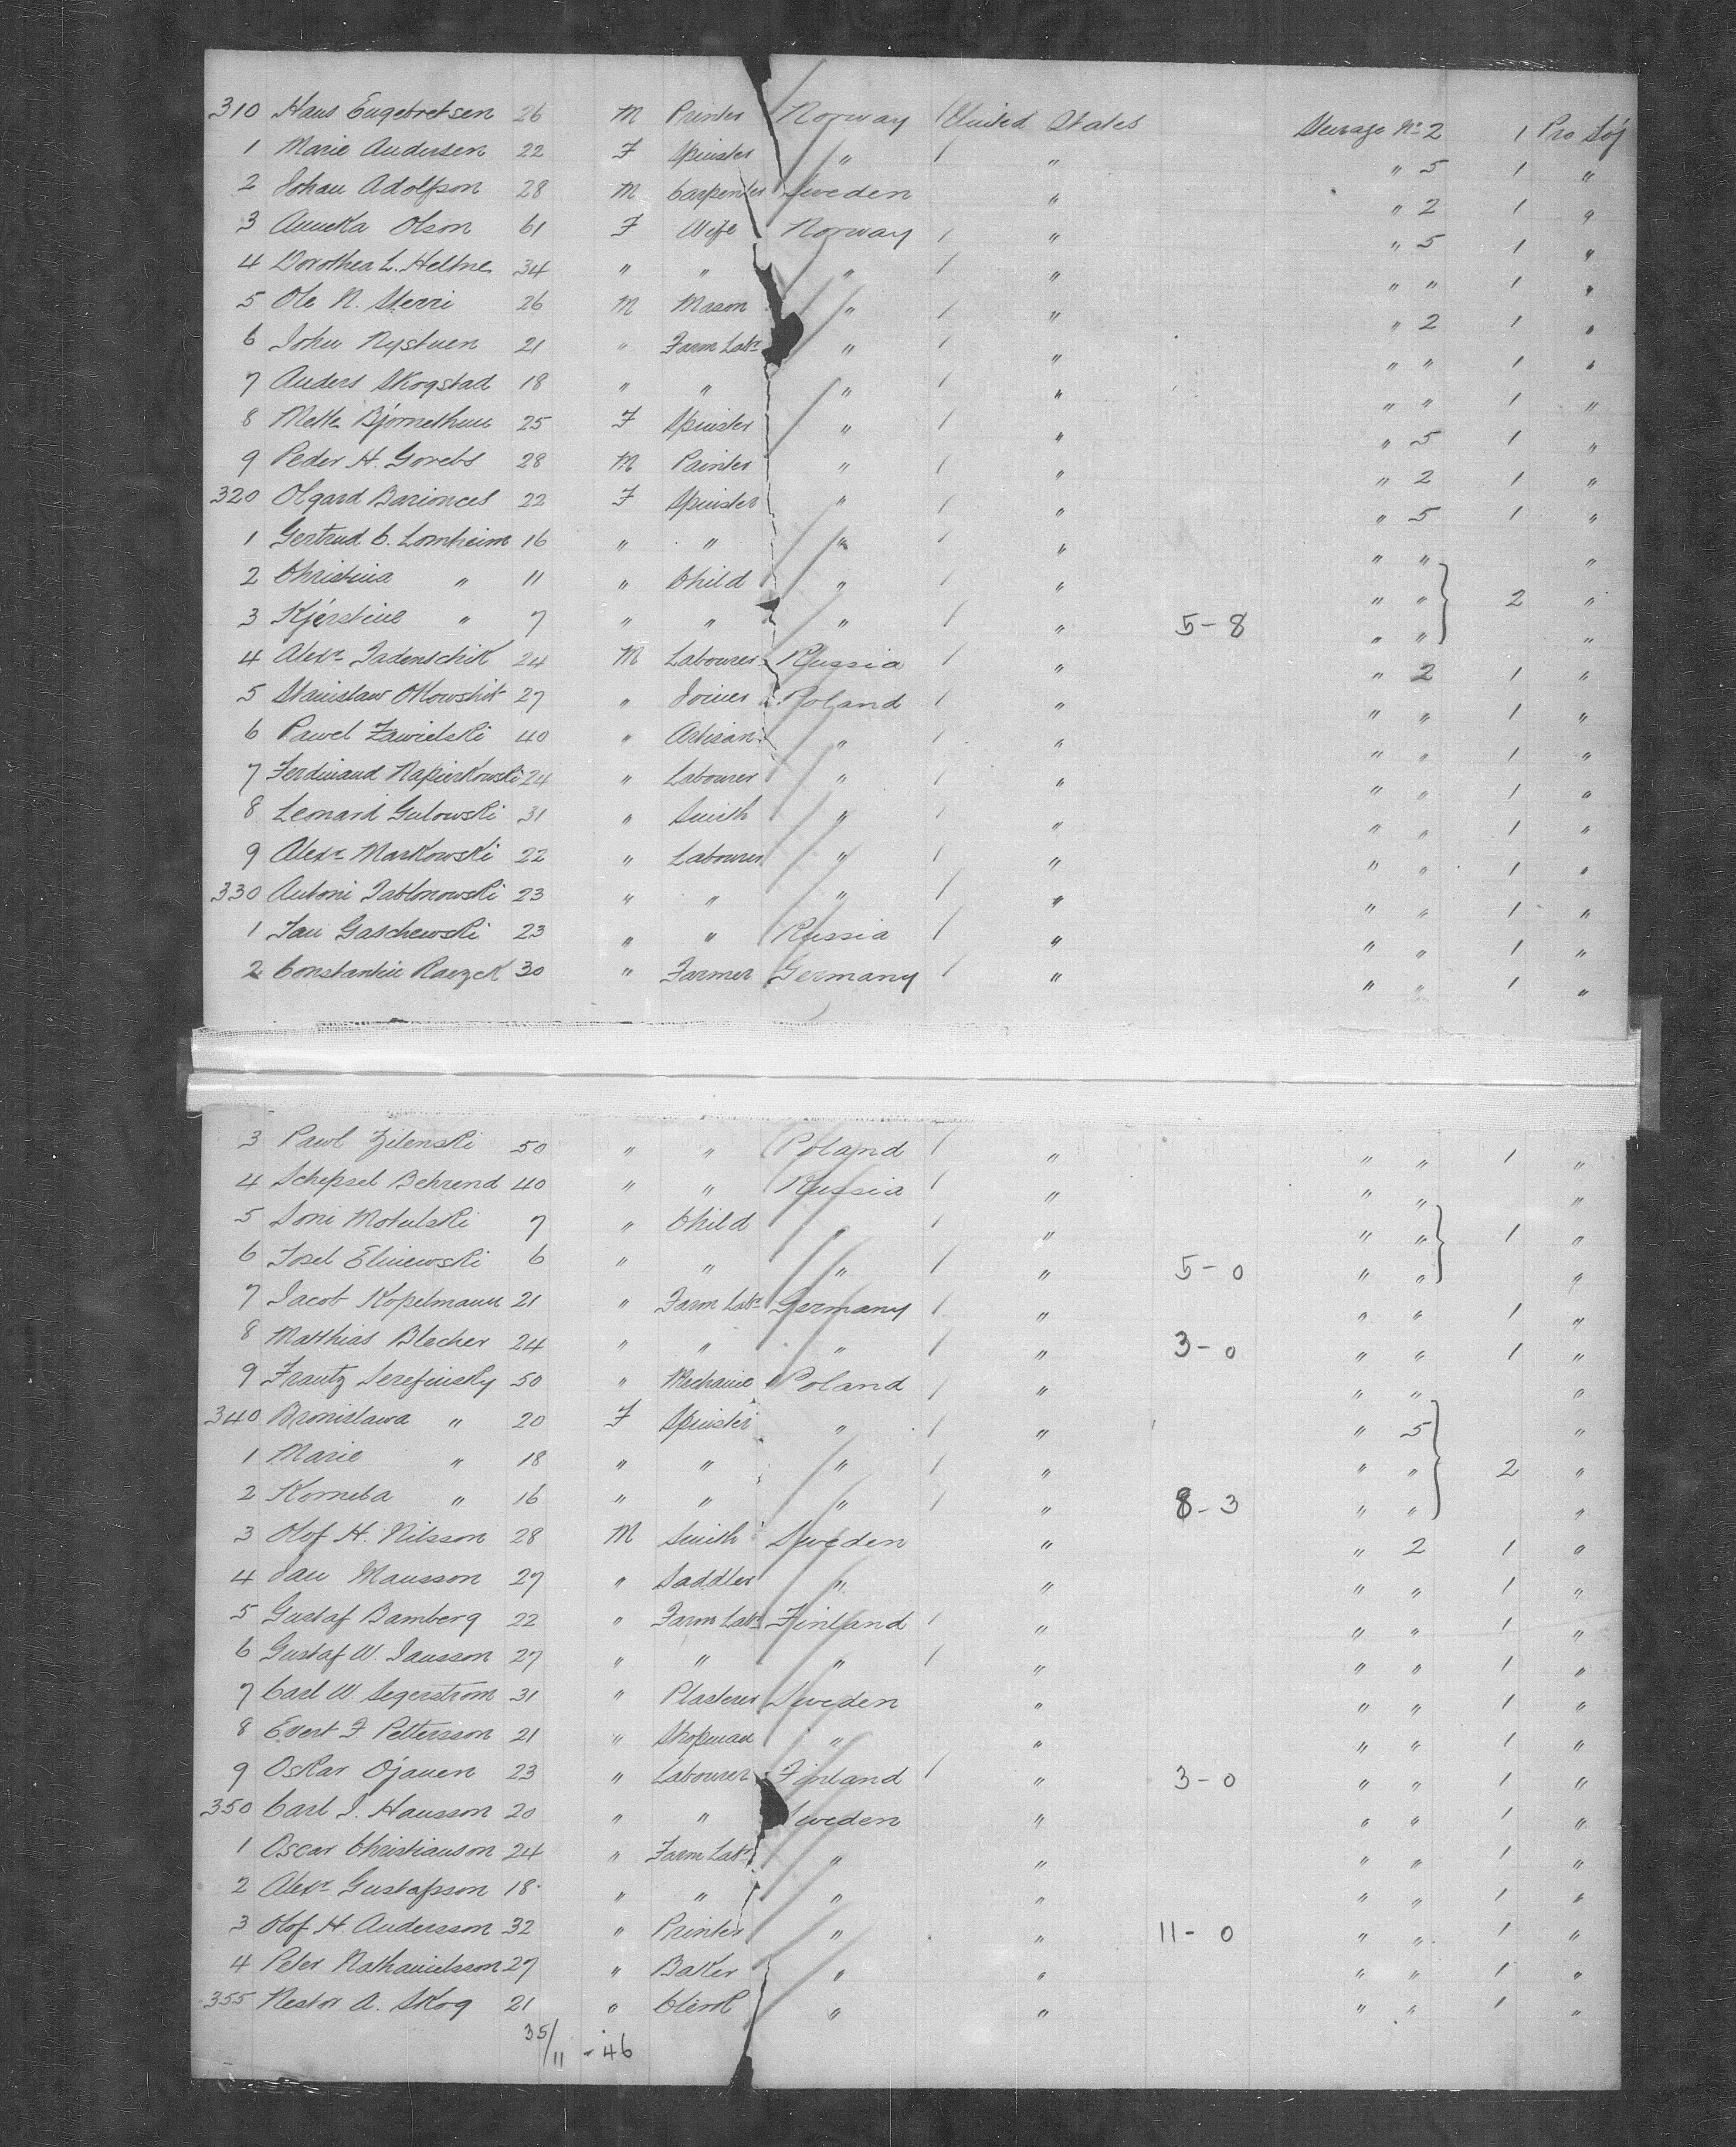 310 Hans Engebretsen 26 M Printer Norway / United States Steerage No 2 1 Pro Soj
1 Marie Andersen 22 F Spinster " / " " 5 1 "
2 Johan Adolfson 28 M Carpenter Sweden " " 2 1 "
3 Anneka Olson 61 F Wife Norway / " " 5 1 "
4 Dorothea L. Heltne 34 " " " / " " " 1 "
5 Ole N. Sterri 26 M Mason " / " " 2 1 "
6 John Nystuen 21 " Farm Labr " / " " " 1 "
7 Anders Skogstad 18 " " " / " " " 1 "
8 Mette Bjornethun 25 F Spinster " / " " 5 1 "
9 Peder H. Gorebs 28 M Painter " / " " 2 1 "
320 Olgard Barionces 22 F Spinster " / " " 5 1 "
1 Gertrud C. Lomheim 16 " " " / " " " "
2 Christina " 11 " Child " / " " " 2 "
3 Kjerstine " 7 " " " / " 5-8 " " "
4 Alexr Jadenschik 24 M Labourer Russia / " " 2 1 "
5 Stanislaw Otlowshit 27 " Joiner Poland / " " " 1 "
6 Pawel Zawielski 40 " Artisan " / " " " 1 "
7 Ferdinand Napierkowski 24 " Labourer " / " " " 1 "
8 Leonard Gulowski 31 " Smith " / " " " 1 "
9 Alexr Markowski 22 " Labourer " / " " " 1 "
330 Antoni Jablonowski 23 " " " / " " " 1 "
1 Jan Gaschewski 23 " " Russia / " " " 1 "
2 Constantin Raczek 30 " Farmer Germany / " " " 1 "
3 Pawl Zilenski 50 " " Poland / " " " 1 "
4 Schepsel Behrend 40 " " Russia / " " " "
5 Soni Motulski 7 " Child " / " " " 1 "
6 Josel Eliniewski 6 " " " / " 5-0 " " "
7 Jacob Kopelmann 21 " Farm Labr Germany / " " " 1 "
8 Matthias Blecher 24 " " " / " 3-0 " " 1 "
9 Frantz Serefinsky 50 " Mechanic Poland / " " " "
340 Bronislawa " 20 F Spinster " / " " 5 "
1 Marie " 18 " " " / " " " 2 "
2 Kornela " 16 " " " / " 8-3 " " "
3 Olof H. Nilsson 28 M Smith Sweden " " 2 1 "
4 Jan Mansson 27 " Saddler " " " " 1 "
5 Gustaf Bamberg 22 " Farm Labr Finland / " " " 1 "
6 Gustaf W. Jansson 27 " " " / " " " 1 "
7 Carl W. Segerstrom 31 " Plasterer Sweden " " " 1 "
8 Evert F. Pettersson 21 " Shopman " " " " 1 "
9 Oskar Ojanen 23 " Labourer Finland / " 3-0 " " 1 "
350 Carl J. Hansson 20 " " Sweden " " " 1 "
1 Oscar Christianson 24 " Farm Labr " " " " 1 "
2 Alexr Gustafsson 18 " " " " " " 1 "
3 Olof H. Andersson 32 " Printer " " 11-0 " " 1 "
4 Peter Nathanielsson 27 " Baker " " " " 1 "
355 Nestor A. Skog 21 " Clerk " " " " 1 "
35/11 - 46